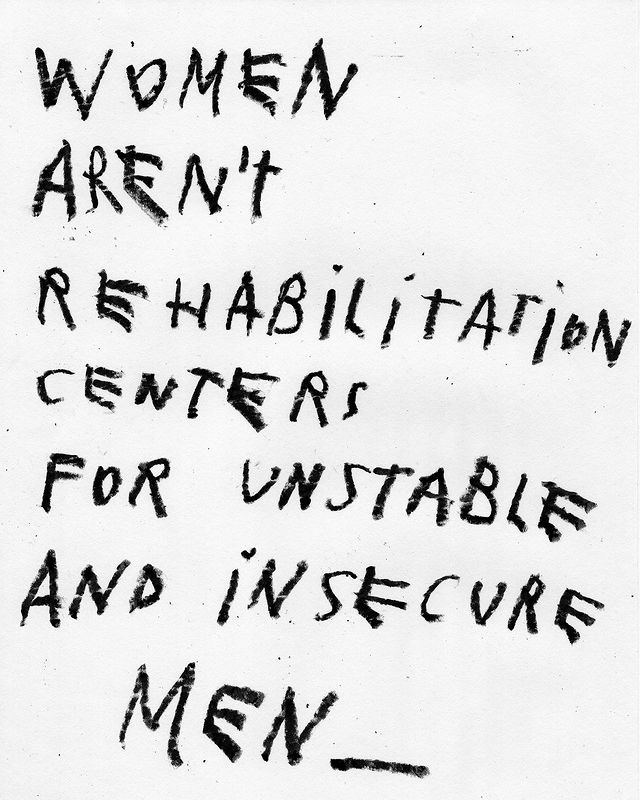 WOMEN
AREN't
REHABiLiTATiON
CENTERS
FOR UNSTABLE
AND iNSECURE
MEN_